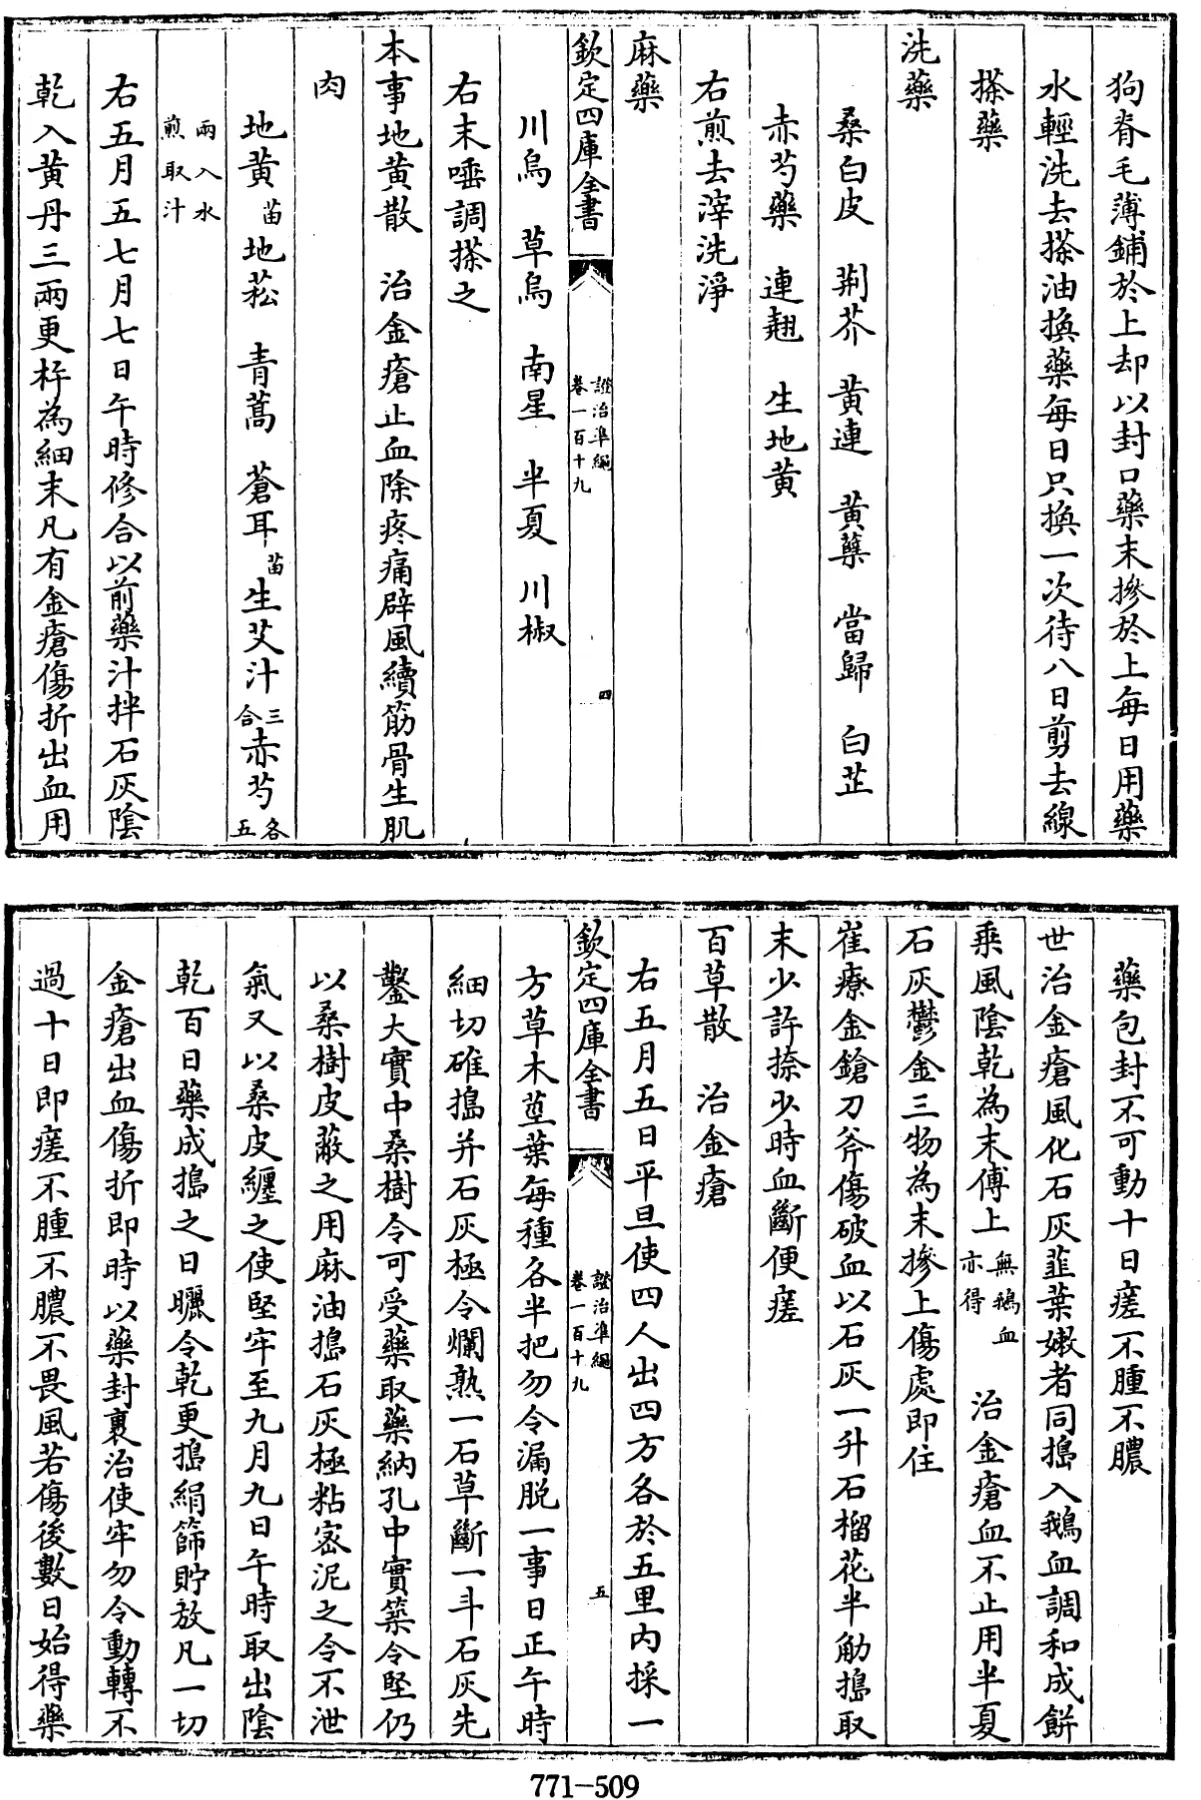 狗脊毛薄鋪於上却以封口藥末摻於上每日用藥
水輕洗去搽油換藥每日只換一次待八日剪去線
搽藥
洗藥
桑白皮 荆芥 黄連 黄蘗 當歸 白芷
赤芍藥 連翹 生地黄
右煎去滓洗淨
麻藥
欽定四庫全書 證治準繩 卷一百十九 四
川烏 草烏 南星 半夏 川椒
右末唾調搽之
本事地黄散 治金瘡止血除疼痛辟風續筋骨生肌
肉
地黄苗 地菘 青蒿 蒼耳苗 生艾汁三合 赤芍各五
兩入水煎取汁
右五月五七月七日午時修合以前藥汁拌石灰陰
乾入黄丹三兩更杵為細末凡有金瘡傷折出血用
藥包封不可動十日瘥不腫不膿
世治金瘡風化石灰韮葉嫩者同搗入鵝血調和成餅
乘風陰乾為末傅上無鵝血亦得 治金瘡血不止用半夏
石灰鬱金三物為末摻上傷處即住
崔療金鎗刀斧傷破血以石灰一升石榴花半觔搗取
末少許捺少時血斷便瘥
百草散 治金瘡
右五月五日平旦使四人出四方各於五里内採一
欽定四庫全書 證治準繩 卷一百十九 五
方草木莖葉每種各半把勿令漏脱一事日正午時
細切碓搗并石灰極令爛熟一石草斷一斗石灰先
鑿大實中桑樹令可受藥取藥納孔中實築令堅仍
以桑樹皮蔽之用麻油搗石灰極粘宻泥之令不泄
氣又以桑皮纏之使堅牢至九月九日午時取出陰
乾百日藥成搗之日曬令乾更搗絹篩貯放凡一切
金瘡出血傷折即時以藥封裹治使牢勿令動轉不
過十日即瘥不腫不膿不畏風若傷後數日始得藥
771-509